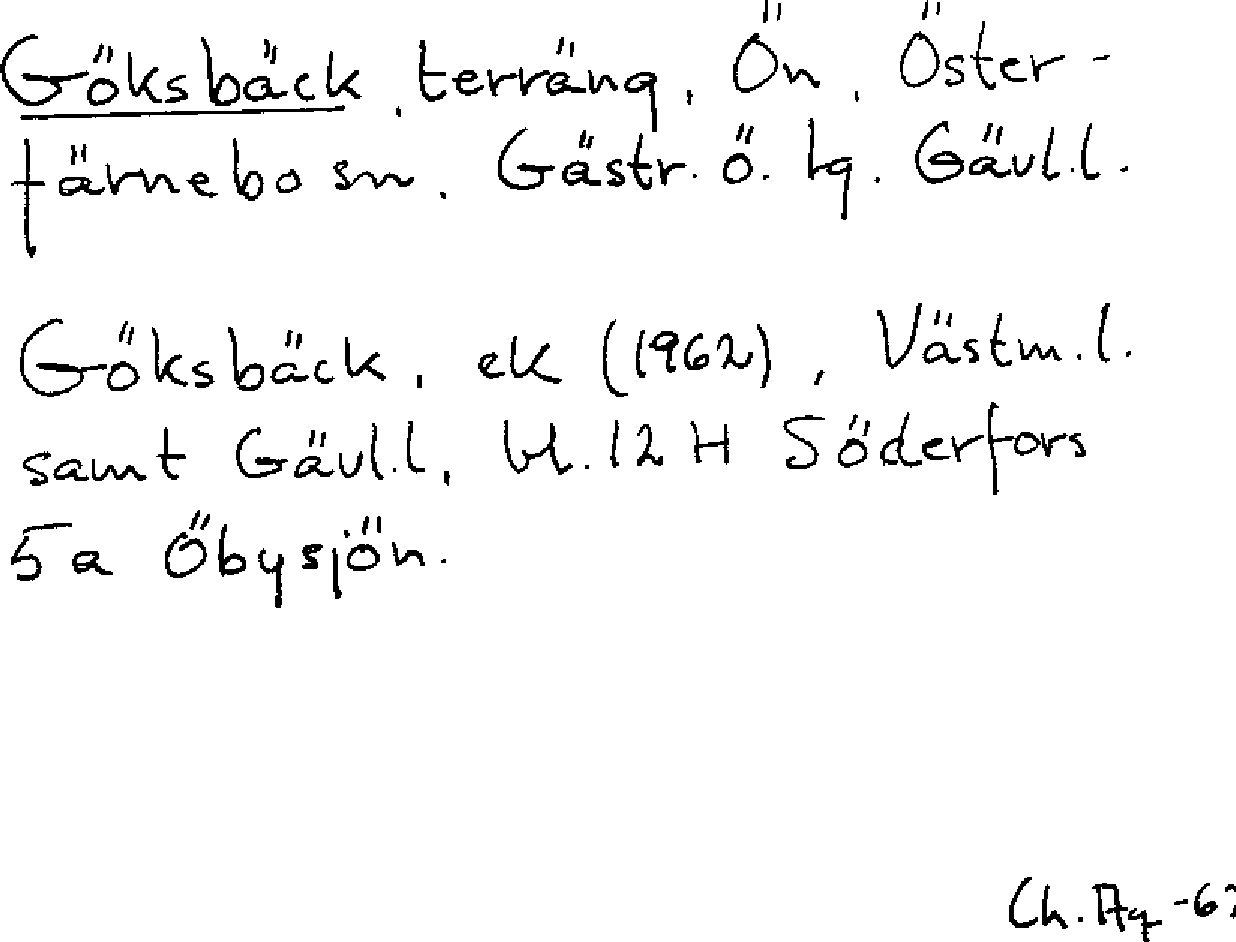 Göksbäck, terräng, Ön, Öster-
färnebo sn. Gästr. ö. tg. Gävl.l.
Göksbäck, ek (1962), Västm.l.
samt Gävl.l, bl. 12 H Söderfors
5a Öbysjön.
Ch. Ag